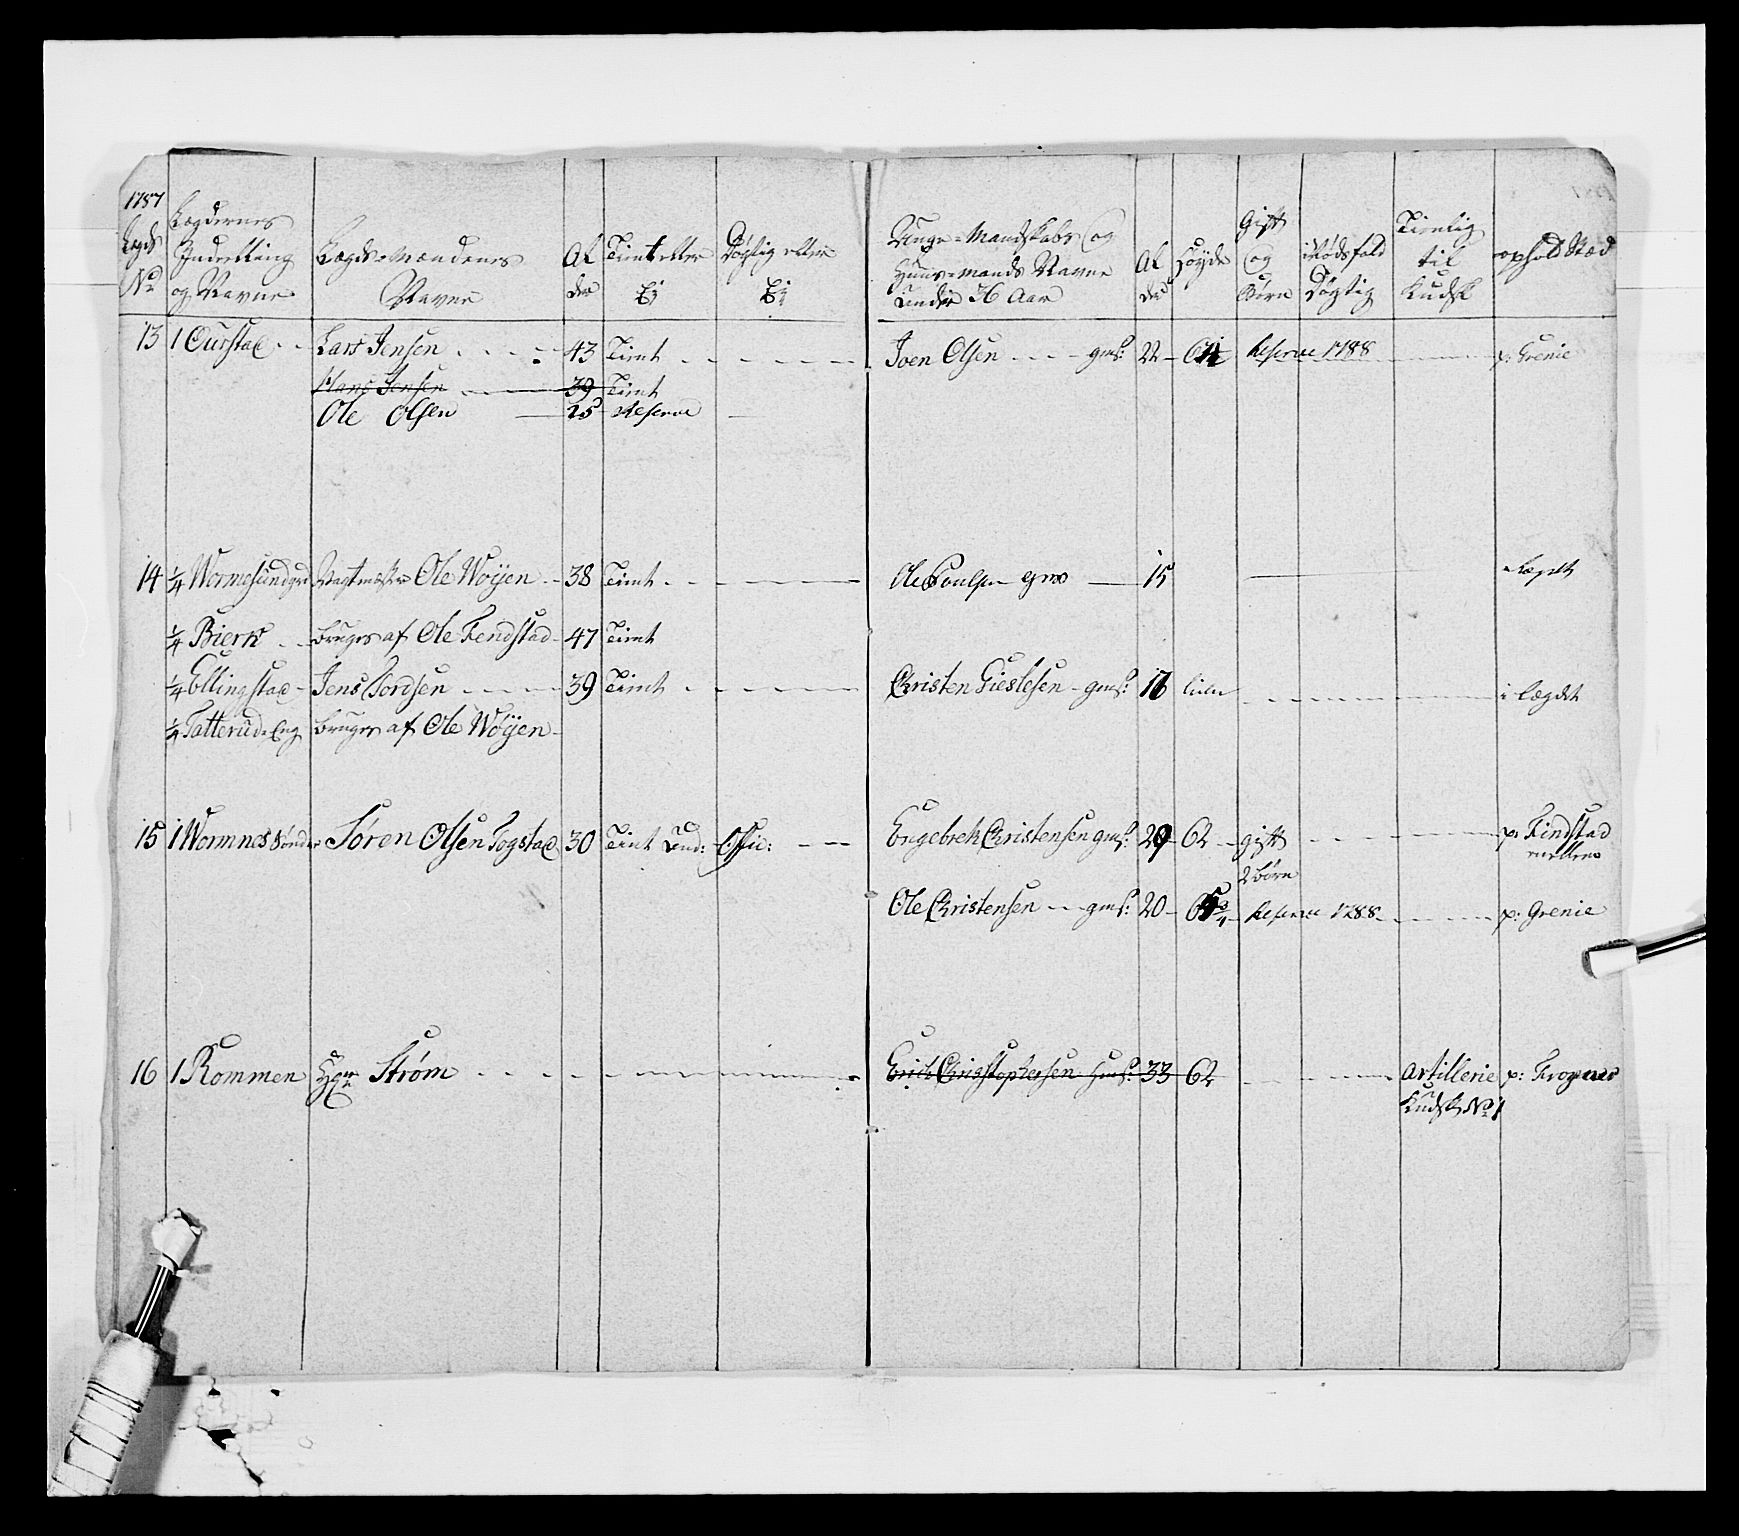 1787
Legds No
Lægdernes Inddeeling og Navne
Lægds-Mændenes Navne
Al der
Tient eller Ej
Døgtig eller Ej
Unge-Mandskabs og Huus-mands Navne Under 36 Aar
Al der
Høyde
Gift og Børn
i Nødsfald Døgtig
Tienlig til Kudsk
ophold Stæd
13 1 Ourstad Lars Jensen 43 Tient Joen Olsen gms: 22 Reserve 1788 p: Grenie
Hans Jensen 39 Tient
Ole Olsen 25 Reserve
14 1/4 Wormesundgrd Vagtmester Ole Woÿen 38 Tient Ole Poulsen gms 15 i Lægdet
1/4 Bierk bruges af Ole Fendstad 47 Tient
1/4 Ellingstad Jens Tordsen 39 Tient Christen Gieslesen gms: 16 liden i Lægdet
1/4 Tatterud-Eng bruges af Ole Woÿen
15 1 Wormnes Sønder Søren Olsen Fogstad 30 Tient Und: Offic: Engebreth Christensen gms: 29 62 gift p: Findstad
2 børn mellem
Ole Christensen gms: 20 Reserve 1788 p: Grenie
16 1 Rommen Hr Strøm Erich Christophersen Hms: 33 62 Artillerie p: Frogner
Kudsk No 1